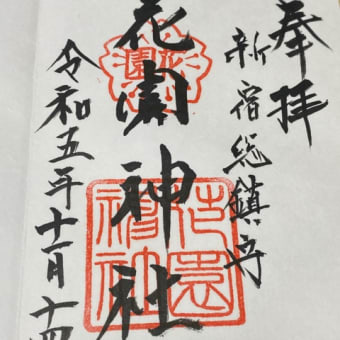 奉拝
新宿総鎮守
花園神社
令和五年十一月十四
花園神社